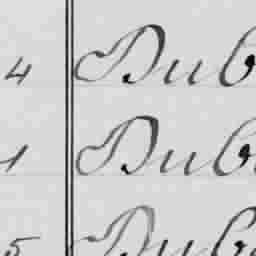 4 Dub
1 Dub
5 Dub